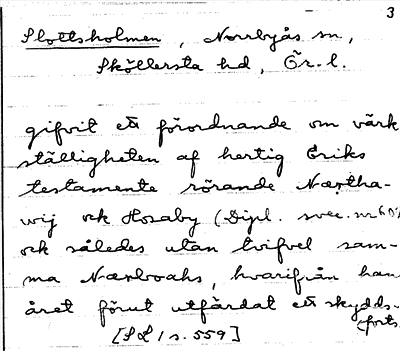 3
Slottsholmen, Norrbyås sn,
Sköllersta hd, Ör. l.
gifvit ett förordnande om värk
ställigheten af hertig Eriks
testamente rörande Nærtha-
wij och Hosaby (Dipl. svec. nr
och således utan tvifvel sam-
ma Nærboahs, hvarifrån han
året förut utfärdat ett skydds-
(forts.
[SL 1 s. 559]